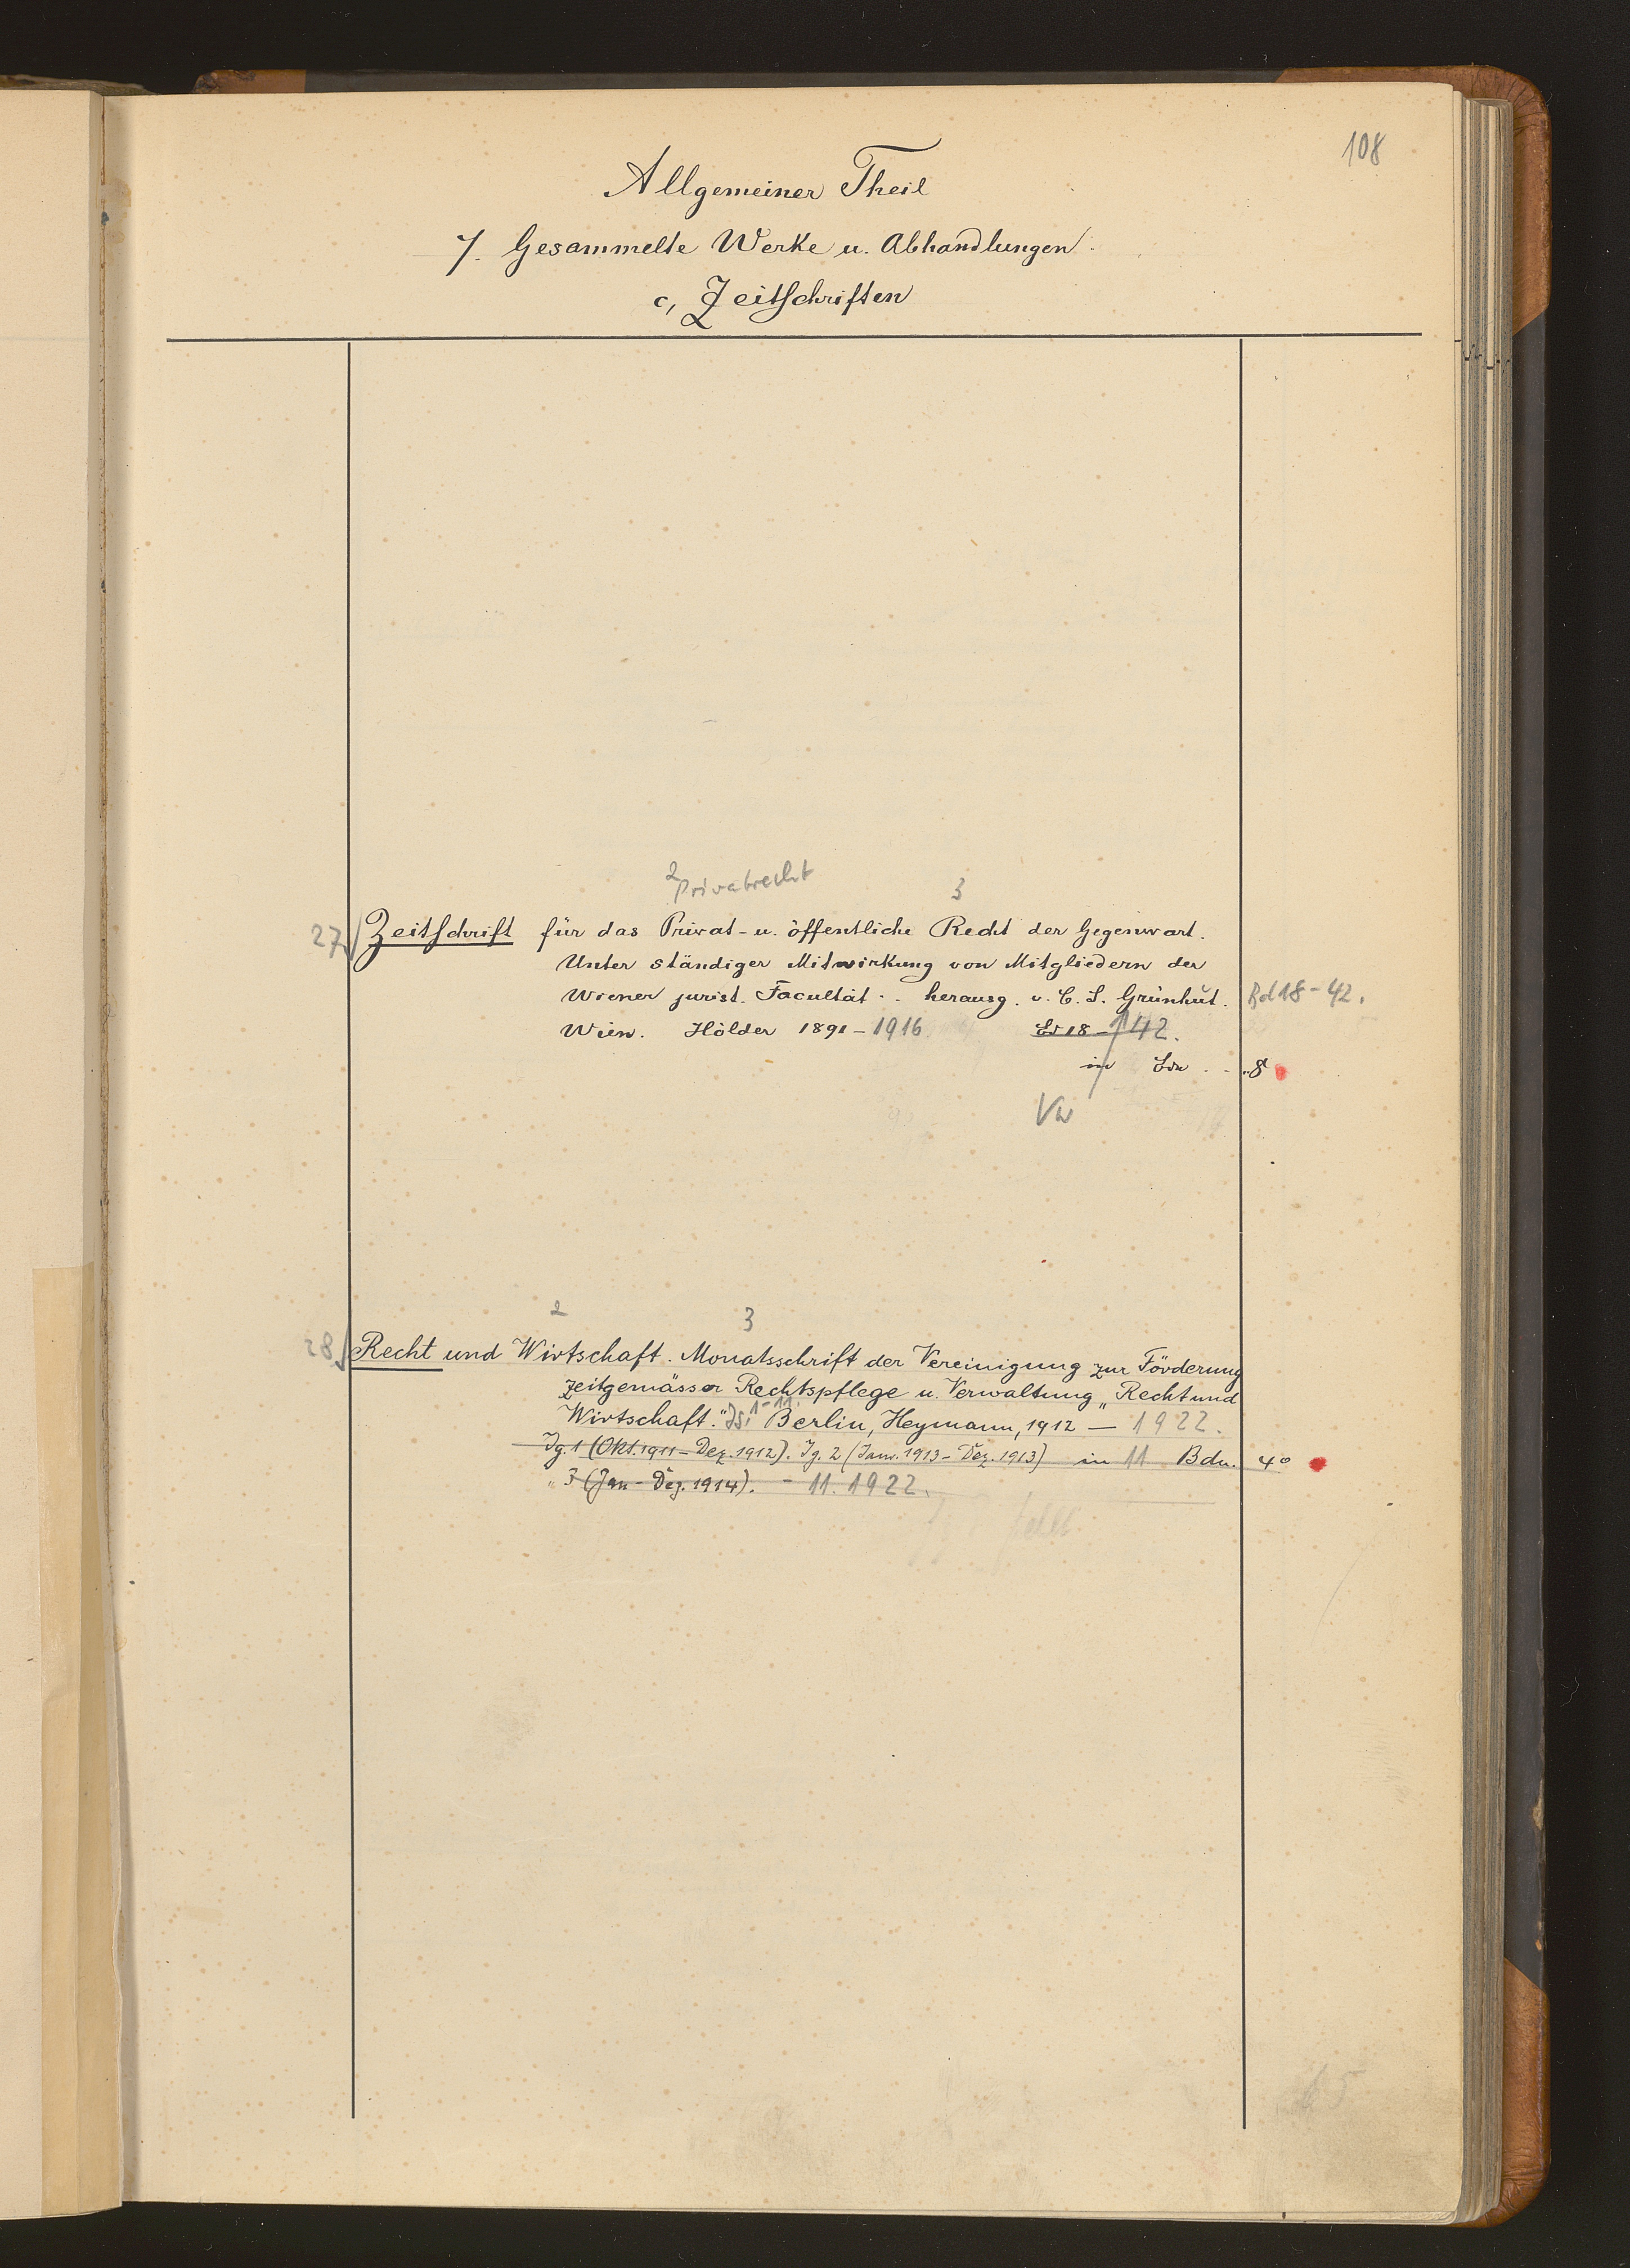 108
Allgemeiner Theil
7. Gesammelte Werke u. Abhandlungen.
c, Zeitschriften
2 Privatrecht 3
27 Zeitschrift für das Privat- u. öffentliche Recht der Gegenwart.
Unter ständiger Mitwirkung von Mitgliedern der
Wiener jurist. Facultät .. herausg. v. C. S. Grünhut. Bd 18-42.
Wien. Hölder 1891-1916 Bd 18-42.
in Bdn .. 8
2 3
28 Recht und Wirtschaft. Monatsschrift der Vereinigung zur Förderung
zeitgemässer Rechtspflege u. Verwaltung „Recht und
Wirtschaft." Jg. 1-11. Berlin, Heymann, 1912 — 1922.
Jg. 1 (Okt. 1911 - Dez. 1912). Jg. 2 (Janr. 1913 - Dez. 1913) in 11 Bdn. 4°
" 3 (Jan - Dez. 1914). - 11. 1922.
fehlt
65